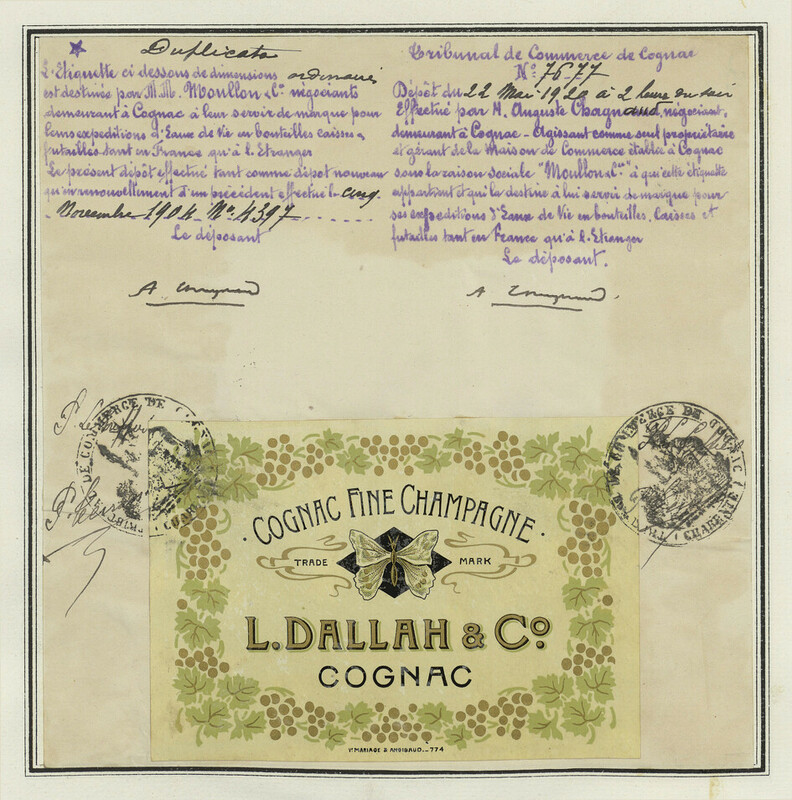 Duplicata
L'Etiquette ci dessous de dimensions ordinaires
est destinée par M.M. Moullon & Cº négociants
demeurant à Cognac à leur servir de marque pour
leurs expeditions d'Eaux de Vie en bouteilles caisses &
futailles tant en France qu'à l'Etranger
Le présent dépôt effectué tant comme dépôt nouveau
qu'en renouvellement d'un précédent effectué le cinq
Novembre 1904 Nº 4397
Le déposant
Tribunal de Commerce de Cognac
Nº 7677
Dépôt du 22 Mai 1920 à 2 heures du soir
Effectué par M. Auguste Chagnaud, négociant,
demeurant à Cognac - Agissant comme seul propriétaire
et gérant de la Maison de Commerce établie à Cognac
sous la raison sociale "Moullon & Cº" à qui cette étiquette
appartient et qui la destine à lui servir de marque pour
ses expeditions d'Eaux de Vie en bouteilles, Caisses et
futailles tant en France qu'à l'Etranger
Le déposant.
DE COMMERCE DE
CHARENTE
DE COMMERCE DE COGNAC
CHARENTE
· COGNAC FINE CHAMPAGNE ·
TRADE MARK
L. DALLAH & Cº
COGNAC
Iº MARIAGE & ANGIBAUD._774